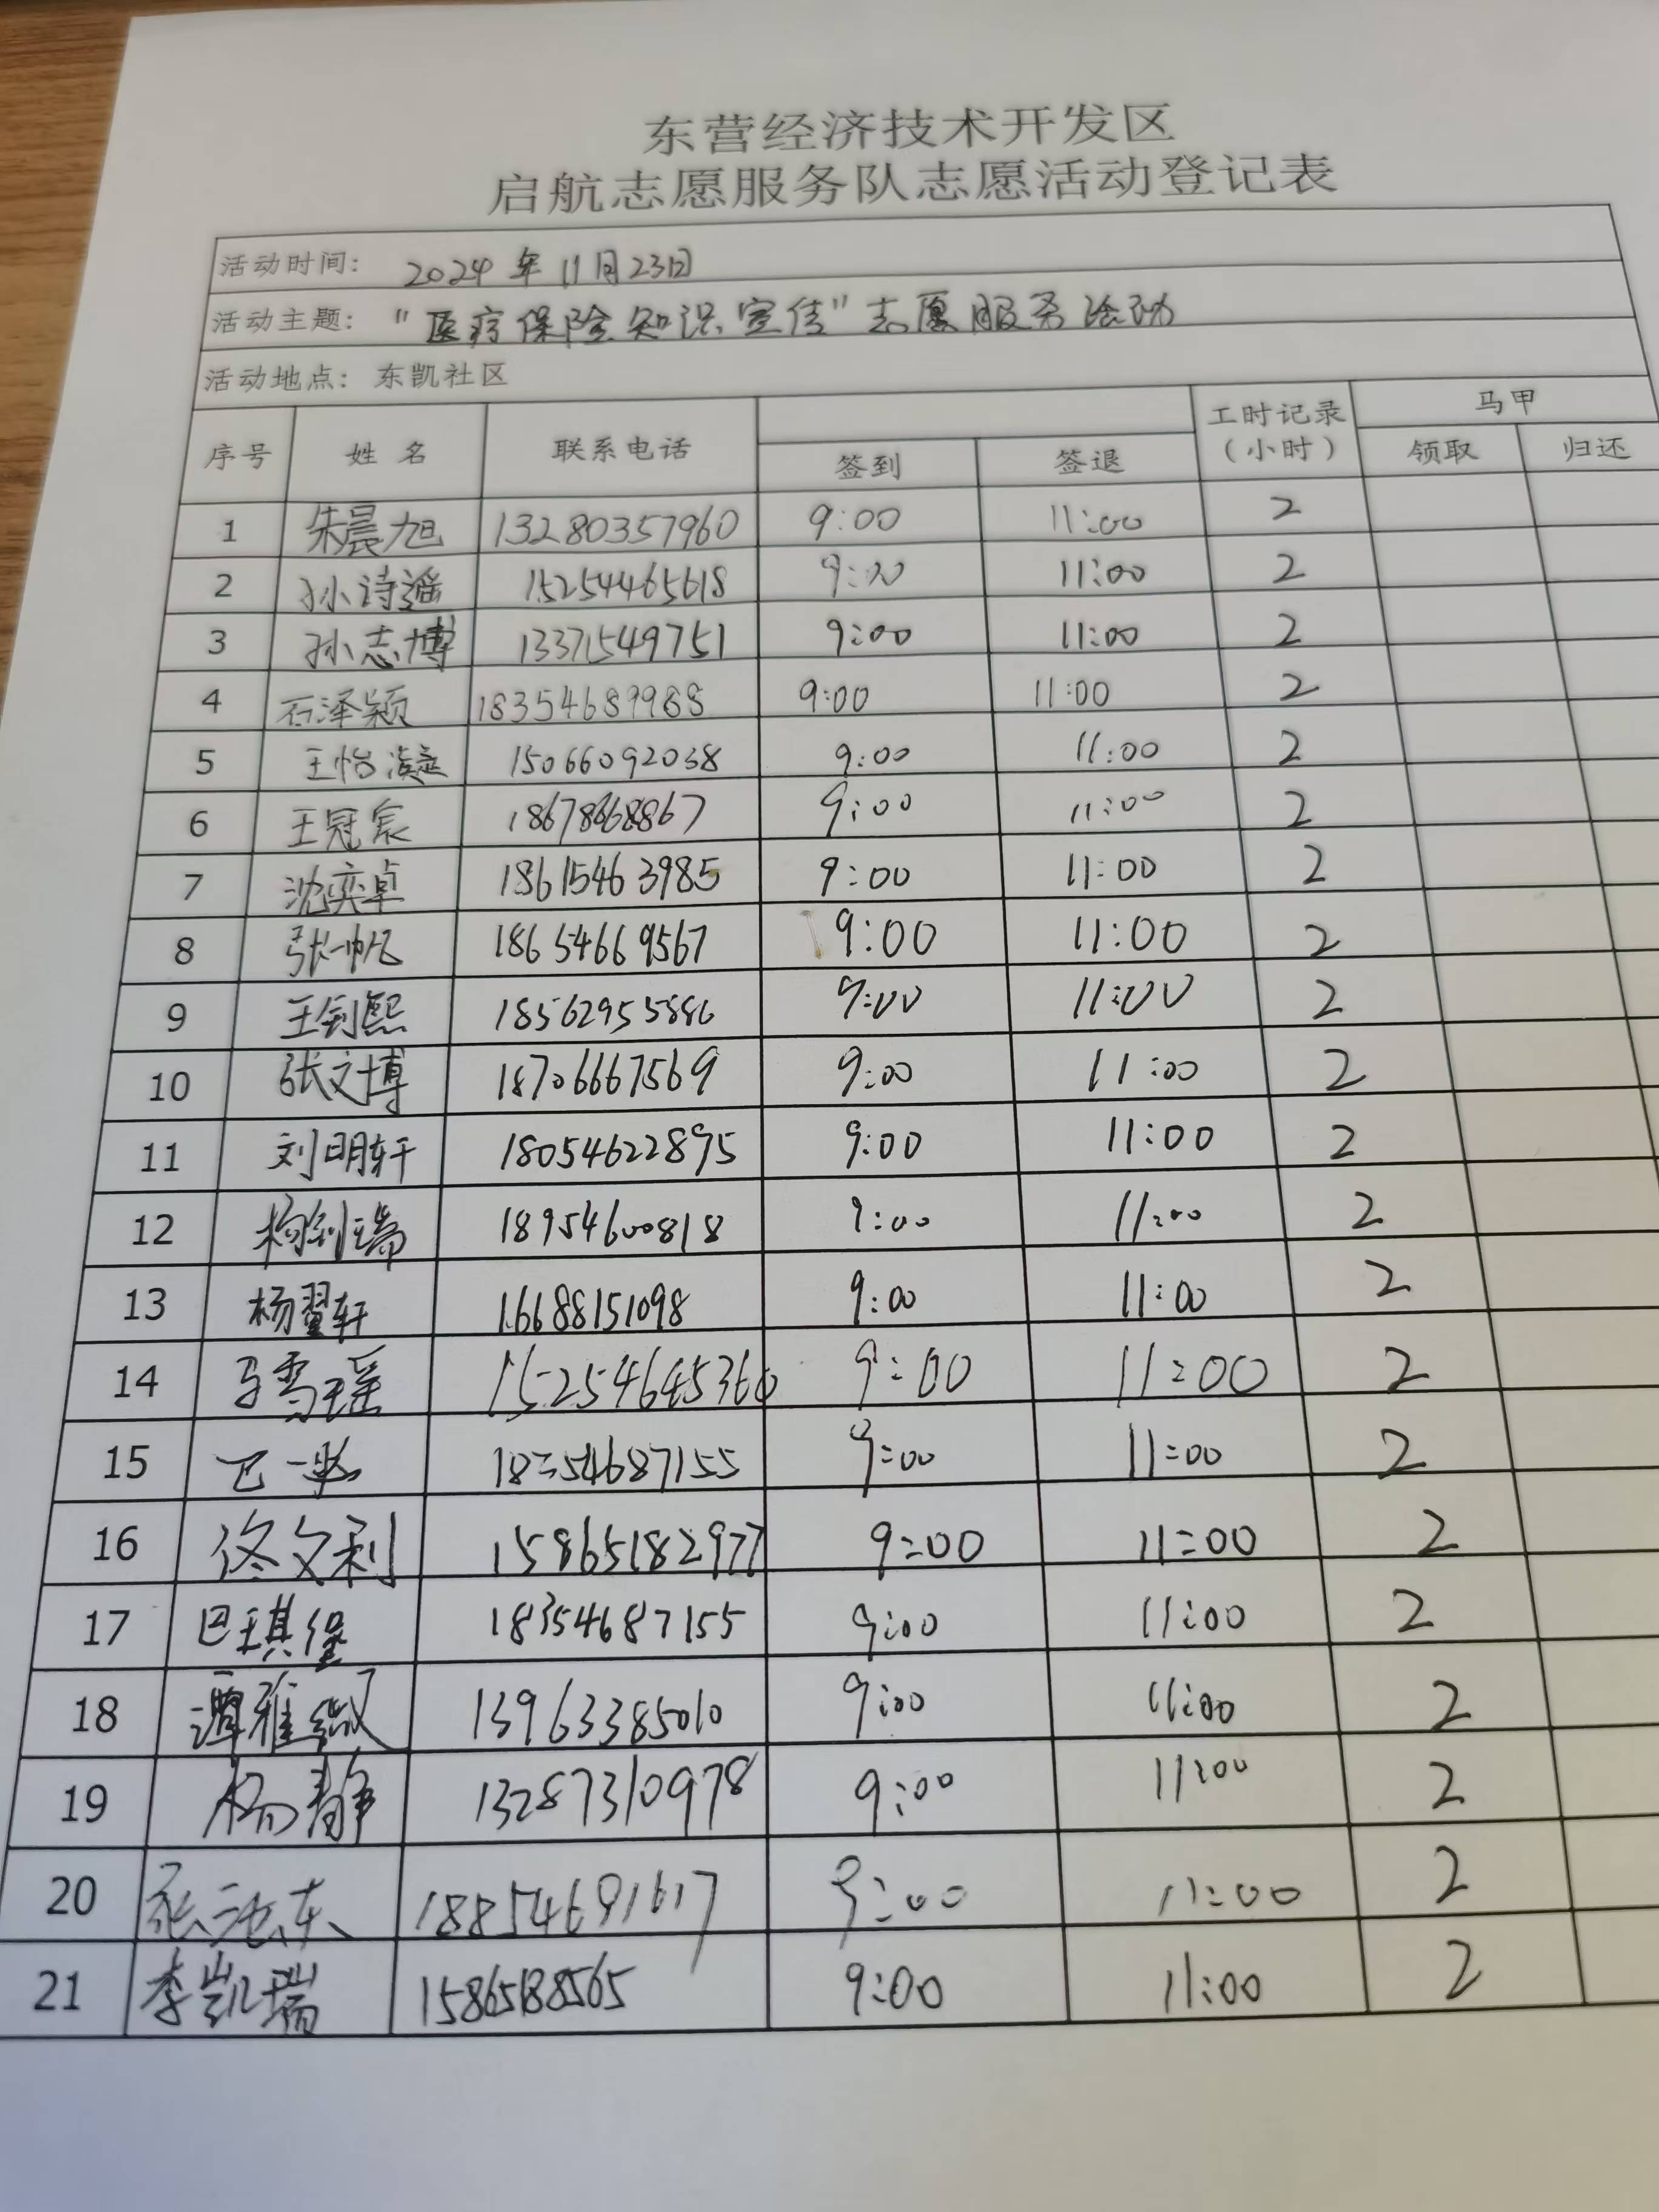 东营经济技术开发区
启航志愿服务队志愿活动登记表
活动时间: 2024年11月23日
活动主题: "医疗保险知识宣传"志愿服务活动
活动地点: 东凯社区
序号 姓名 联系电话 签到 签退 工时记录(小时) 马甲 领取 归还
1 朱晨旭 13280357960 9:00 11:00 2
2 孙诗遥 15254465618 9:00 11:00 2
3 孙志博 13371549751 9:00 11:00 2
4 石泽颖 18354689988 9:00 11:00 2
5 王怡凝 15066092038 9:00 11:00 2
6 王冠宸 18678668867 9:00 11:00 2
7 沈奕卓 18615463985 9:00 11:00 2
8 张一帆 18654669567 9:00 11:00 2
9 王钊熙 18562955886 9:00 11:00 2
10 张文博 18706667569 9:00 11:00 2
11 刘明轩 18054622895 9:00 11:00 2
12 杨钊瑞 18954600818 9:00 11:00 2
13 杨翌轩 16688151098 9:00 11:00 2
14 马雪瑶 15254645360 9:00 11:00 2
15 18354687155 9:00 11:00 2
16 佟文利 15865182977 9:00 11:00 2
17 巴琪堡 18354687155 9:00 11:00 2
18 谭雅 13963385010 9:00 11:00 2
19 杨静 13287310978 9:00 11:00 2
20 18854681617 9:00 11:00 2
21 李凯瑞 15865188565 9:00 11:00 2